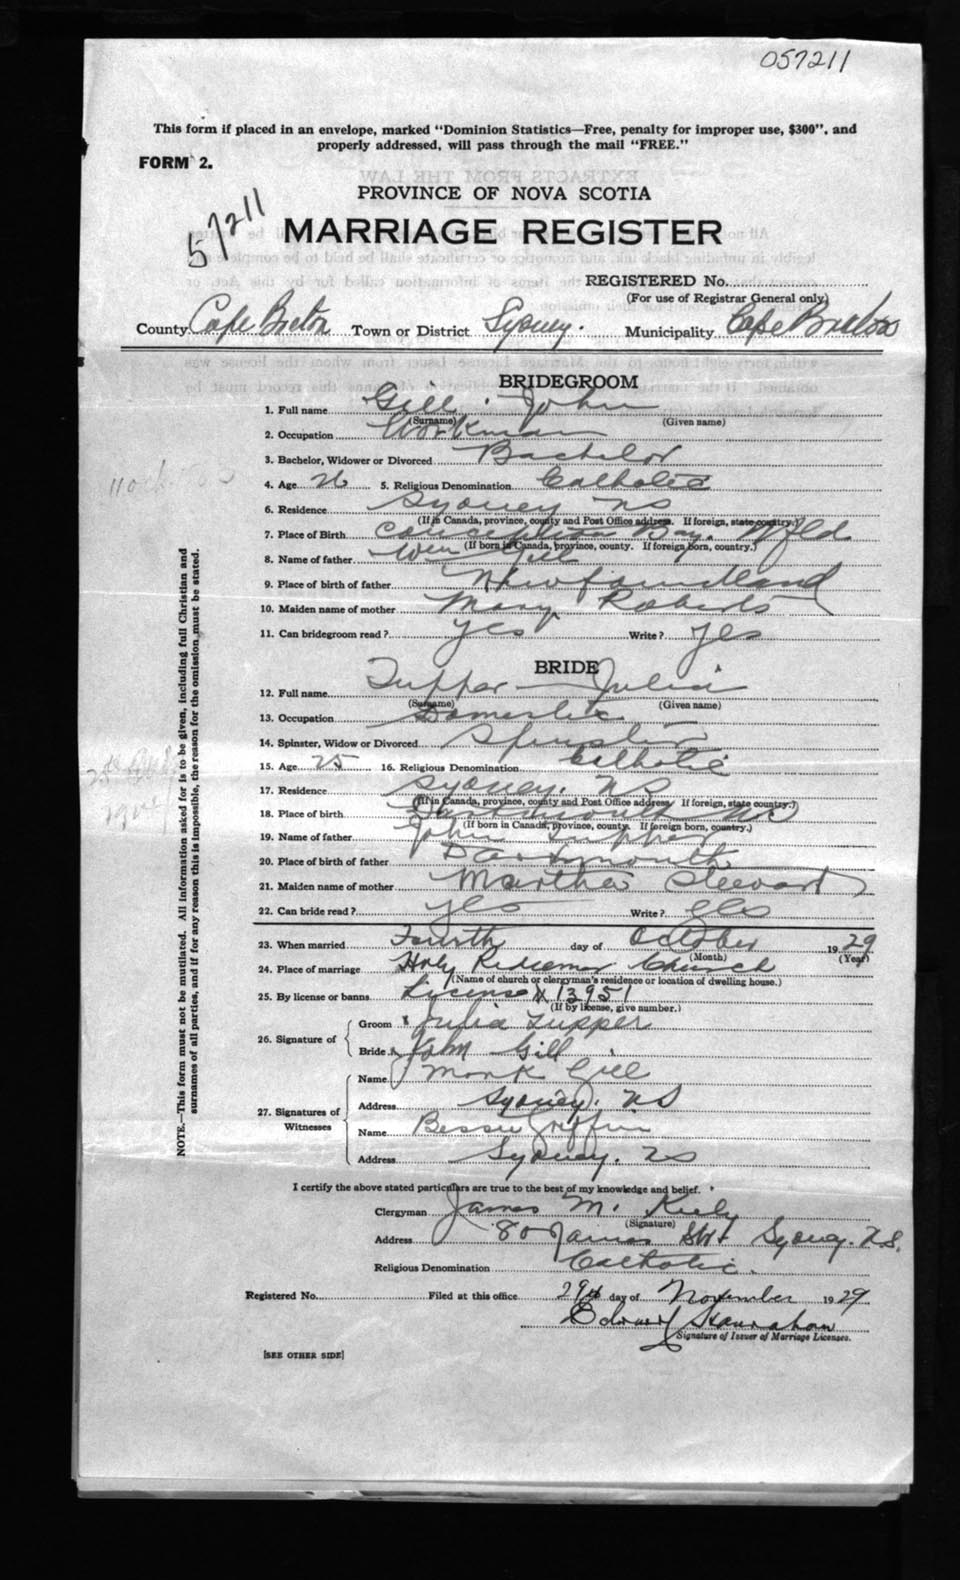 057211
This form if placed in an envelope, marked "Dominion Statistics—Free, penalty for improper use, $300", and
properly addressed, will pass through the mail "FREE."
FORM 2.
PROVINCE OF NOVA SCOTIA
57211
MARRIAGE REGISTER
REGISTERED No.
(For use of Registrar General only)
County Cape Breton Town or District Sydney. Municipality Cape Breton
BRIDEGROOM
1. Full name Gill. John
(Surname) (Given name)
2. Occupation Workman
3. Bachelor, Widower or Divorced Bachelor
4. Age 26 5. Religious Denomination Catholic
6. Residence Sydney NS
(If in Canada, province, county and Post Office address. If foreign, state country.)
7. Place of Birth Conception Bay. Nfld
(If born in Canada, province, county. If foreign born, country.)
8. Name of father Wm Gill
9. Place of birth of father Newfoundland
10. Maiden name of mother Mary Roberts
11. Can bridegroom read? yes Write? yes
BRIDE
12. Full name Tupper - Julia
(Surname) (Given name)
13. Occupation Domestic
14. Spinster, Widow or Divorced Spinster
15. Age 25 16. Religious Denomination Catholic
17. Residence Sydney. NS
(If in Canada, province, county and Post Office address If foreign, state country.)
18. Place of birth Dartmouth NS
(If born in Canada, province, county. If foreign born, country.)
19. Name of father John Tupper
20. Place of birth of father Dartmouth
21. Maiden name of mother Martha Stewart
22. Can bride read? yes Write? yes
23. When married Fourth day of October 1929
(Month) (Year)
24. Place of marriage Holy Redeemer Church
(Name of church or clergyman's residence or location of dwelling house.)
25. By license or banns License N 13951
(If by license, give number.)
26. Signature of
Groom x Julia Tupper
Bride x Gill
27. Signatures of Witnesses
Name Monk Gill
Address Sydney. NS
Name Bessie Griffin
Address Sydney. NS
I certify the above stated particulars are true to the best of my knowledge and belief.
Clergyman James M. Kiely
(Signature)
Address 80 James Sydney. N.S.
Religious Denomination Catholic.
Registered No. Filed at this office 29th day of November 1929
Edward Hanrahan
Signature of Issuer of Marriage Licenses.
[SEE OTHER SIDE]
NOTE.—This form must not be mutilated. All information asked for is to be given, including full Christian and
surnames of all parties, and if for any reason this is impossible, the reason for the omission must be stated.